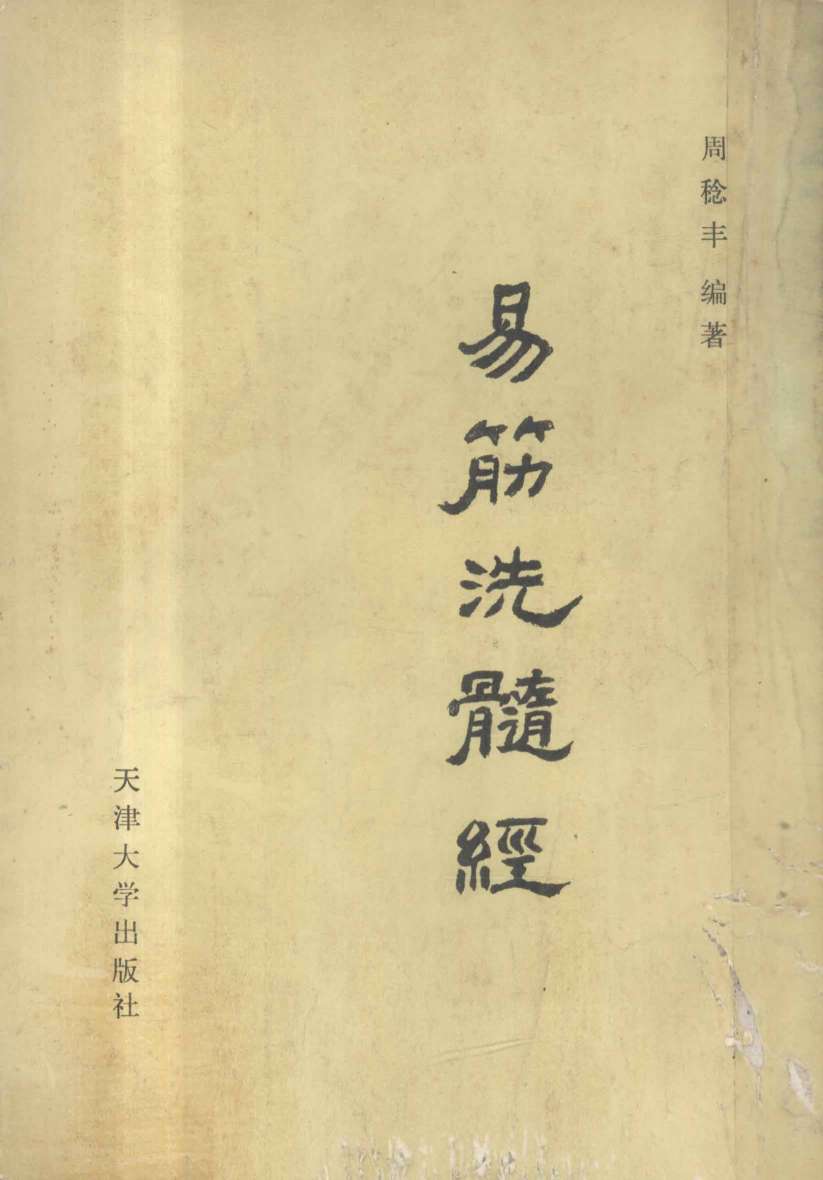 周稔丰 编著
易筋洗髓經
天津大学出版社